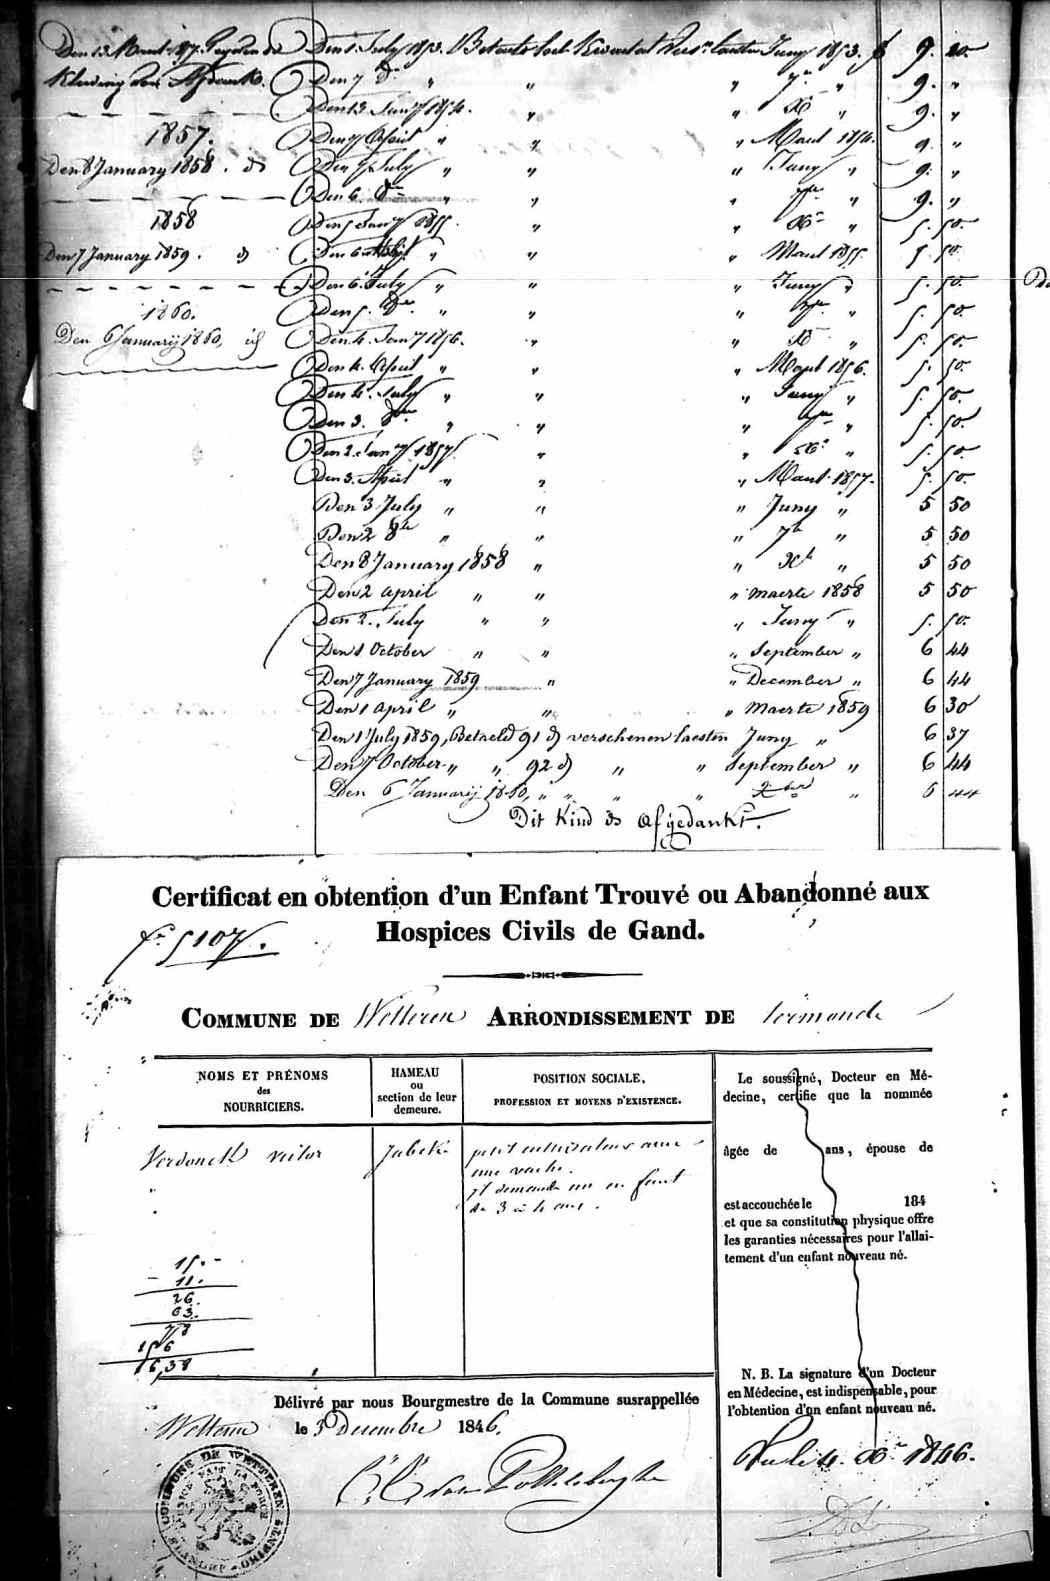 Den 1 July 1853. Betaelt het Kwart Juny 1853. f 9. 20
Den 7 8re " " " 7re " 9. "
Den 13 Jan 1854. " " X " 9. "
1857.
Den 7 April " " " Maert 1854. 9. "
Den 8 January 1858. d
Den 7 July " " " Juny " 9. "
Den 6. 8re " " " 7re " 9. "
1858
Den 5 Jan 1855. " " X " 5. 50.
Den 7 January 1859. d
Den 6 " " " Maert 1855. 5. 50.
Den 6. July " " " Juny " 5. 50.
1860.
Den 5. 8re " " " 7re " 5. 50.
Den 6 Januarij 1860, id
Den 4. Jan 1856. " " X " 5. 50.
Den 4. April " " " Maert 1856. 5. 50.
Den 4. July " " " Juny " 5. 50.
Den 3. 8re " " " 7re " 5. 50.
Den 2. Jan 1857. " " X " 5. 50.
Den 3. April " " " Maert 1857. 5. 50.
Den 3 July " " " Juny " 5 50
Den 2 8re " " " 7re " 5 50
Den 8 January 1858 " " X " 5 50
Den 2 april " " " maerte 1858 5 50
Den 2. July " " " Juny " 5. 50.
Den 1 October " " " September " 6 44
Den 7 January 1859 " " December " 6 44
Den 1 april " " " maerte 1859 6 30
Den 1 July 1859, Betaeld 91 d verschenen laesten Juny " 6 37
Den 7 October " " 92 d " " September " 6 44
Den 6 Januarij 1860, " " " " Xber " 6 44
Dit Kind is afgedankt.
Certificat en obtention d'un Enfant Trouvé ou Abandonné aux
Hospices Civils de Gand.
5107.
COMMUNE DE Wetteren ARRONDISSEMENT DE termonde
NOMS ET PRÉNOMS
des
NOURRICIERS.
HAMEAU
ou
section de leur
demeure.
POSITION SOCIALE,
PROFESSION ET MOYENS D'EXISTENCE.
Verdonck victor
Jabeke
petit cultivateur avec
une vache.
il demande un enfant
de 3 à 4 ans.
15.-
11.
26.
63.
78
156
16,38
Le soussigné, Docteur en Mé-
decine, certifie que la nommée
âgée de ans, épouse de
est accouchée le 184
et que sa constitution physique offre
les garanties nécessaires pour l'allai-
tement d'un enfant nouveau né.
N. B. La signature d'un Docteur
en Médecine, est indispensable, pour
l'obtention d'un enfant nouveau né.
Délivré par nous Bourgmestre de la Commune susrappellée
Wetteren le 3 Decembre 1846.
4. Xre 1846.
COMMUNE DE WETTEREN
L'UNION FAIT LA FORCE